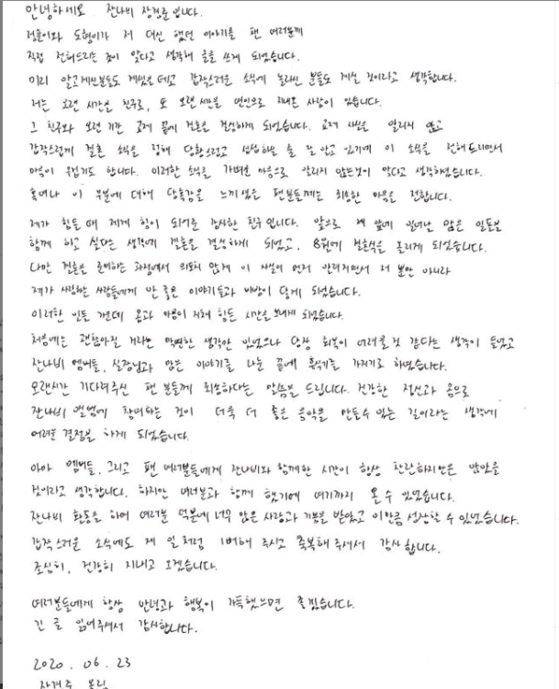 안녕하세요 잔나비 장경준 입니다.
정훈이와 도형이가 저 대신 했던 이야기를 팬 여러분께
직접 전해드리는 것이 맞다고 생각해 글을 쓰게 되었습니다.
미리 알고계신분들도 계실텐데고 갑작스러운 소식에 놀라신 분들도 계실 것이라고 생각합니다.
저는 오랜 시간을 친구로, 또 오랜 시간을 연인으로 지내온 사람이 있습니다.
그 친구와 오랜 기간 교제 끝에 결혼을 결심하게 되었습니다. 교제 사실을 알리지 않고
갑작스럽게 결혼 소식을 접해 당황스럽고 섭섭하실 줄 잘 알고 있기에 이 소식을 전해드리면서
마음이 무겁기도 합니다. 이러한 소식을 가벼운 마음으로 알리지 않는것이 맞다고 생각하였습니다.
혹여나 이 부분에 대해 당혹감을 느끼셨을 팬분들께는 죄송한 마음을 전합니다.
제가 힘들 때 제게 힘이 되어준 감사한 친구 입니다. 앞으로 제 앞에 일어날 많은 일들도
함께 하고 싶다는 생각에 결혼을 결심하게 되었고, 8월에 결혼식을 올리게 되었습니다.
다만 결혼을 준비하는 과정에서 의도치 않게 이 사실이 먼저 알려지면서 저 뿐만 아니라
제가 사랑하는 사람들에게 안 좋은 이야기들과 비방이 닿게 되었습니다.
이러한 일들 가운데 몸과 마음이 지쳐 힘든 시간을 보내게 되었습니다.
처음에는 괜찮아질 거라는 막연한 생각만 있었으나 당장 회복이 어려울 것 같다는 생각이 들었고
잔나비 멤버들, 실장님과 많은 이야기를 나눈 끝에 휴식기를 가지기로 하였습니다.
오랜시간 기다려주신 팬 분들께 죄송하다는 말씀을 드립니다. 건강한 정신과 몸으로
잔나비 앨범에 참여하는 것이 더욱 더 좋은 음악을 만들수 있는 길이라는 생각에
어려운 결정을 하게 되었습니다.
아마 멤버들, 그리고 팬 여러분들에게 잔나비와 함께한 시간이 항상 찬란하지만은 않았을
것이라고 생각합니다. 하지만 여러분과 함께 했기에 여기까지 올 수 있었습니다.
잔나비 활동을 하며 여러분 덕분에 너무 많은 사랑과 기쁨을 받았고 이만큼 성장할 수 있었습니다.
갑작스러운 소식에도 제 일처럼 기뻐해 주시고 축복해 주셔서 감사 합니다.
조심히, 건강히 지내고 오겠습니다.
여러분들에게 항상 안녕과 행복이 가득했으면 좋겠습니다.
긴 글 읽어주셔서 감사합니다.
2020. 06. 23
장경준 올림